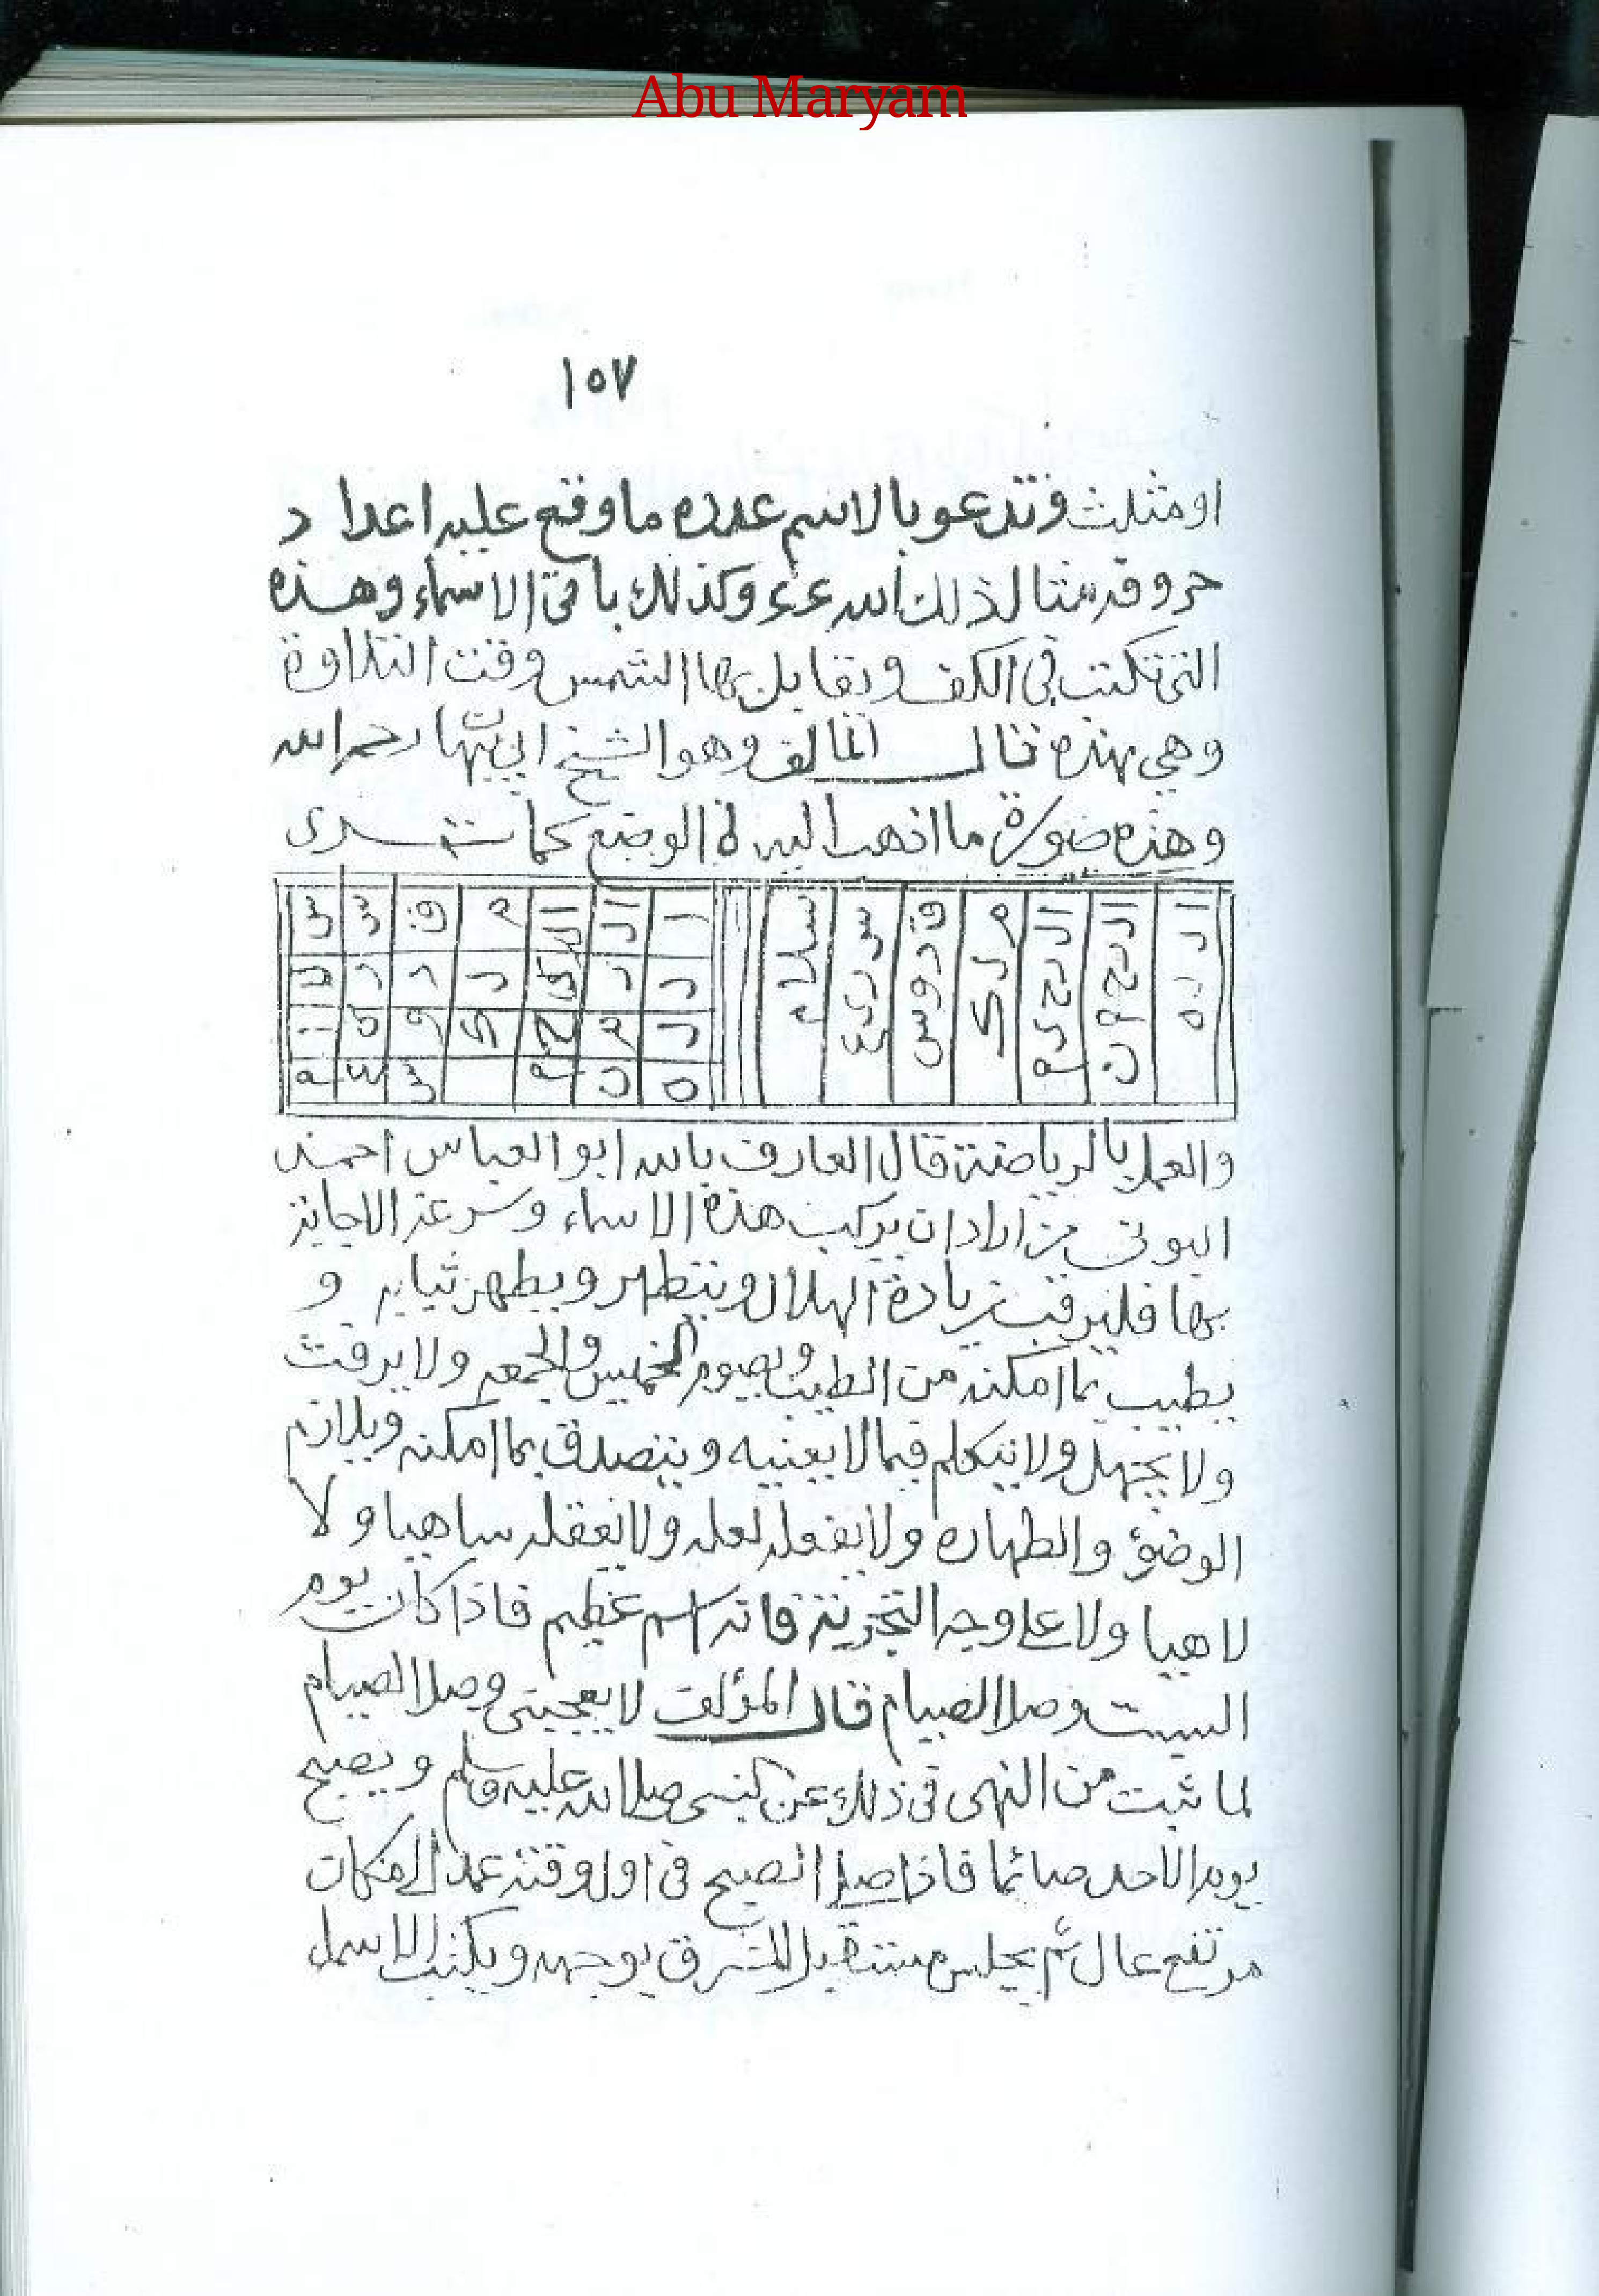 Abu Maryam
١٥٧
او مثلث فتدعو بالاسم عدده ما وقع عليه اعدا د
حروفه مثا لذلك الله ٤٤ وكذلك باقى الاسماء وهذه
التى تكتب فى الكف وتقابل بها الشمس وقت التلاوة
وهي هذه قال المالف وهو الشيخ رحمه الله
وهذه صورة ما اذهب اليه فى الوضع كما ترى
ا ل ل ه
ا ل ر ح م ن
ا ل ر ح ي م
م ل ك
ق د و س
س ر ي ع
س ل ا م
ا ال ال م ق س س
ل ر ل د ر ل
ل م ح ك و ا
ه ن م س ع م
والعمل بالرياضة قال العارف بالله ابو العباس احمد
البونى من اراد ان يركب هذه الاسماء وسرعة الاجابة
بها فليرقب زيادة الهلال ويتطهر ويطهر ثيابه و
يطيب بما امكنه من الطيب ويصوم الخميس والجمعه ولا يرفث
ولا يجهل ولا يتكلم فيما لا يعنيه ويتصدق بما امكنه ويلازم
الوضوء والطهاره ولا يفعله لعله ولا ساهيا ولا
لاهيا ولا على وجه التجربة فانه اسم عظيم فاذا كان يوم
السبت وصل الصيام قال المؤلف لا يعجبنى وصل الصيام
لما ثبت من النهى فى ذلك عن صلى الله عليه وسلم ويصبح
يوم الاحد صائما فاذا صلى الصبح فى اول وقته عمد الى مكان
مرتفع عال ثم يجلس مستقبل المشرق بوجهه ويكتب الاسماء